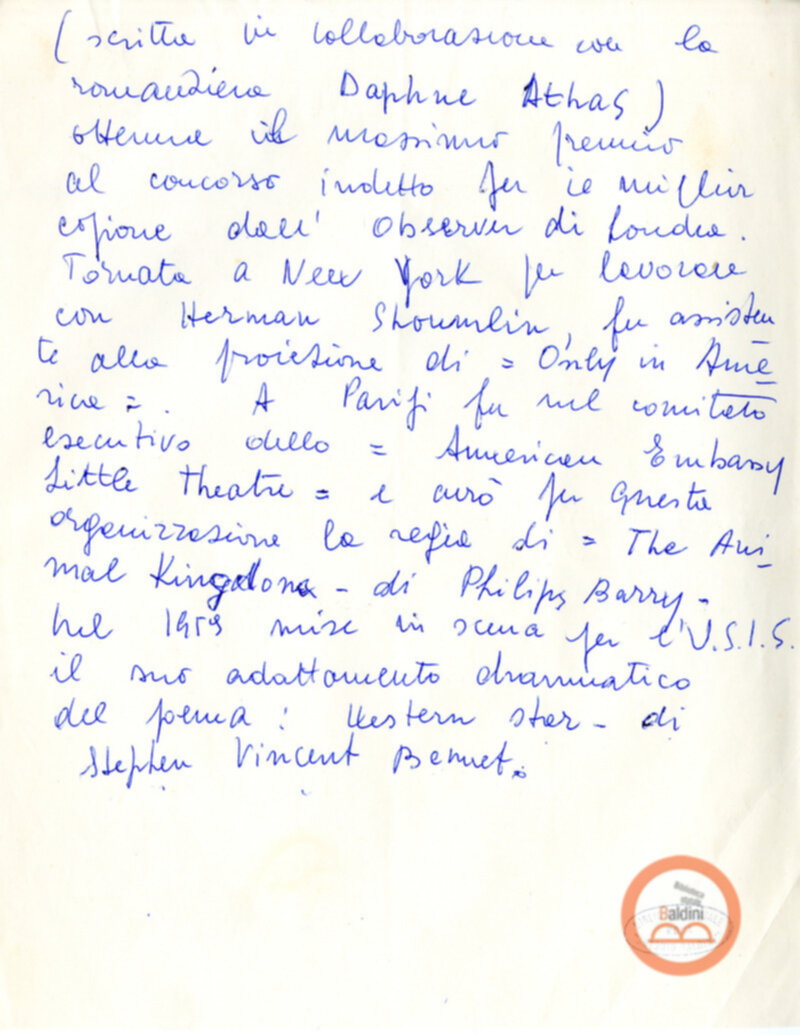 (scritta in collaborazione con la
romanziera Daphne Athas)
ottenne il massimo premio
al concorso indetto per il miglior
copione dall' Observer di Londra.
Tornata a New York per lavorare
con Herman Shoumlin, fu assisten
te alla proiezione di = Only in Ame
rica = . A Parigi fu nel comitato
esecutivo dello = American Embassy
Little Theatre = e curò per questa
organizzazione la regia di = The Ani
mal Kingdom - di Philips Barry -
Nel 1959 mise in scena per l'U.S.I.S.
il suo adattamento drammatico
del poema : Western Star - di
Stephen Vincent Bennet.
Biblioteca
statale
Baldini